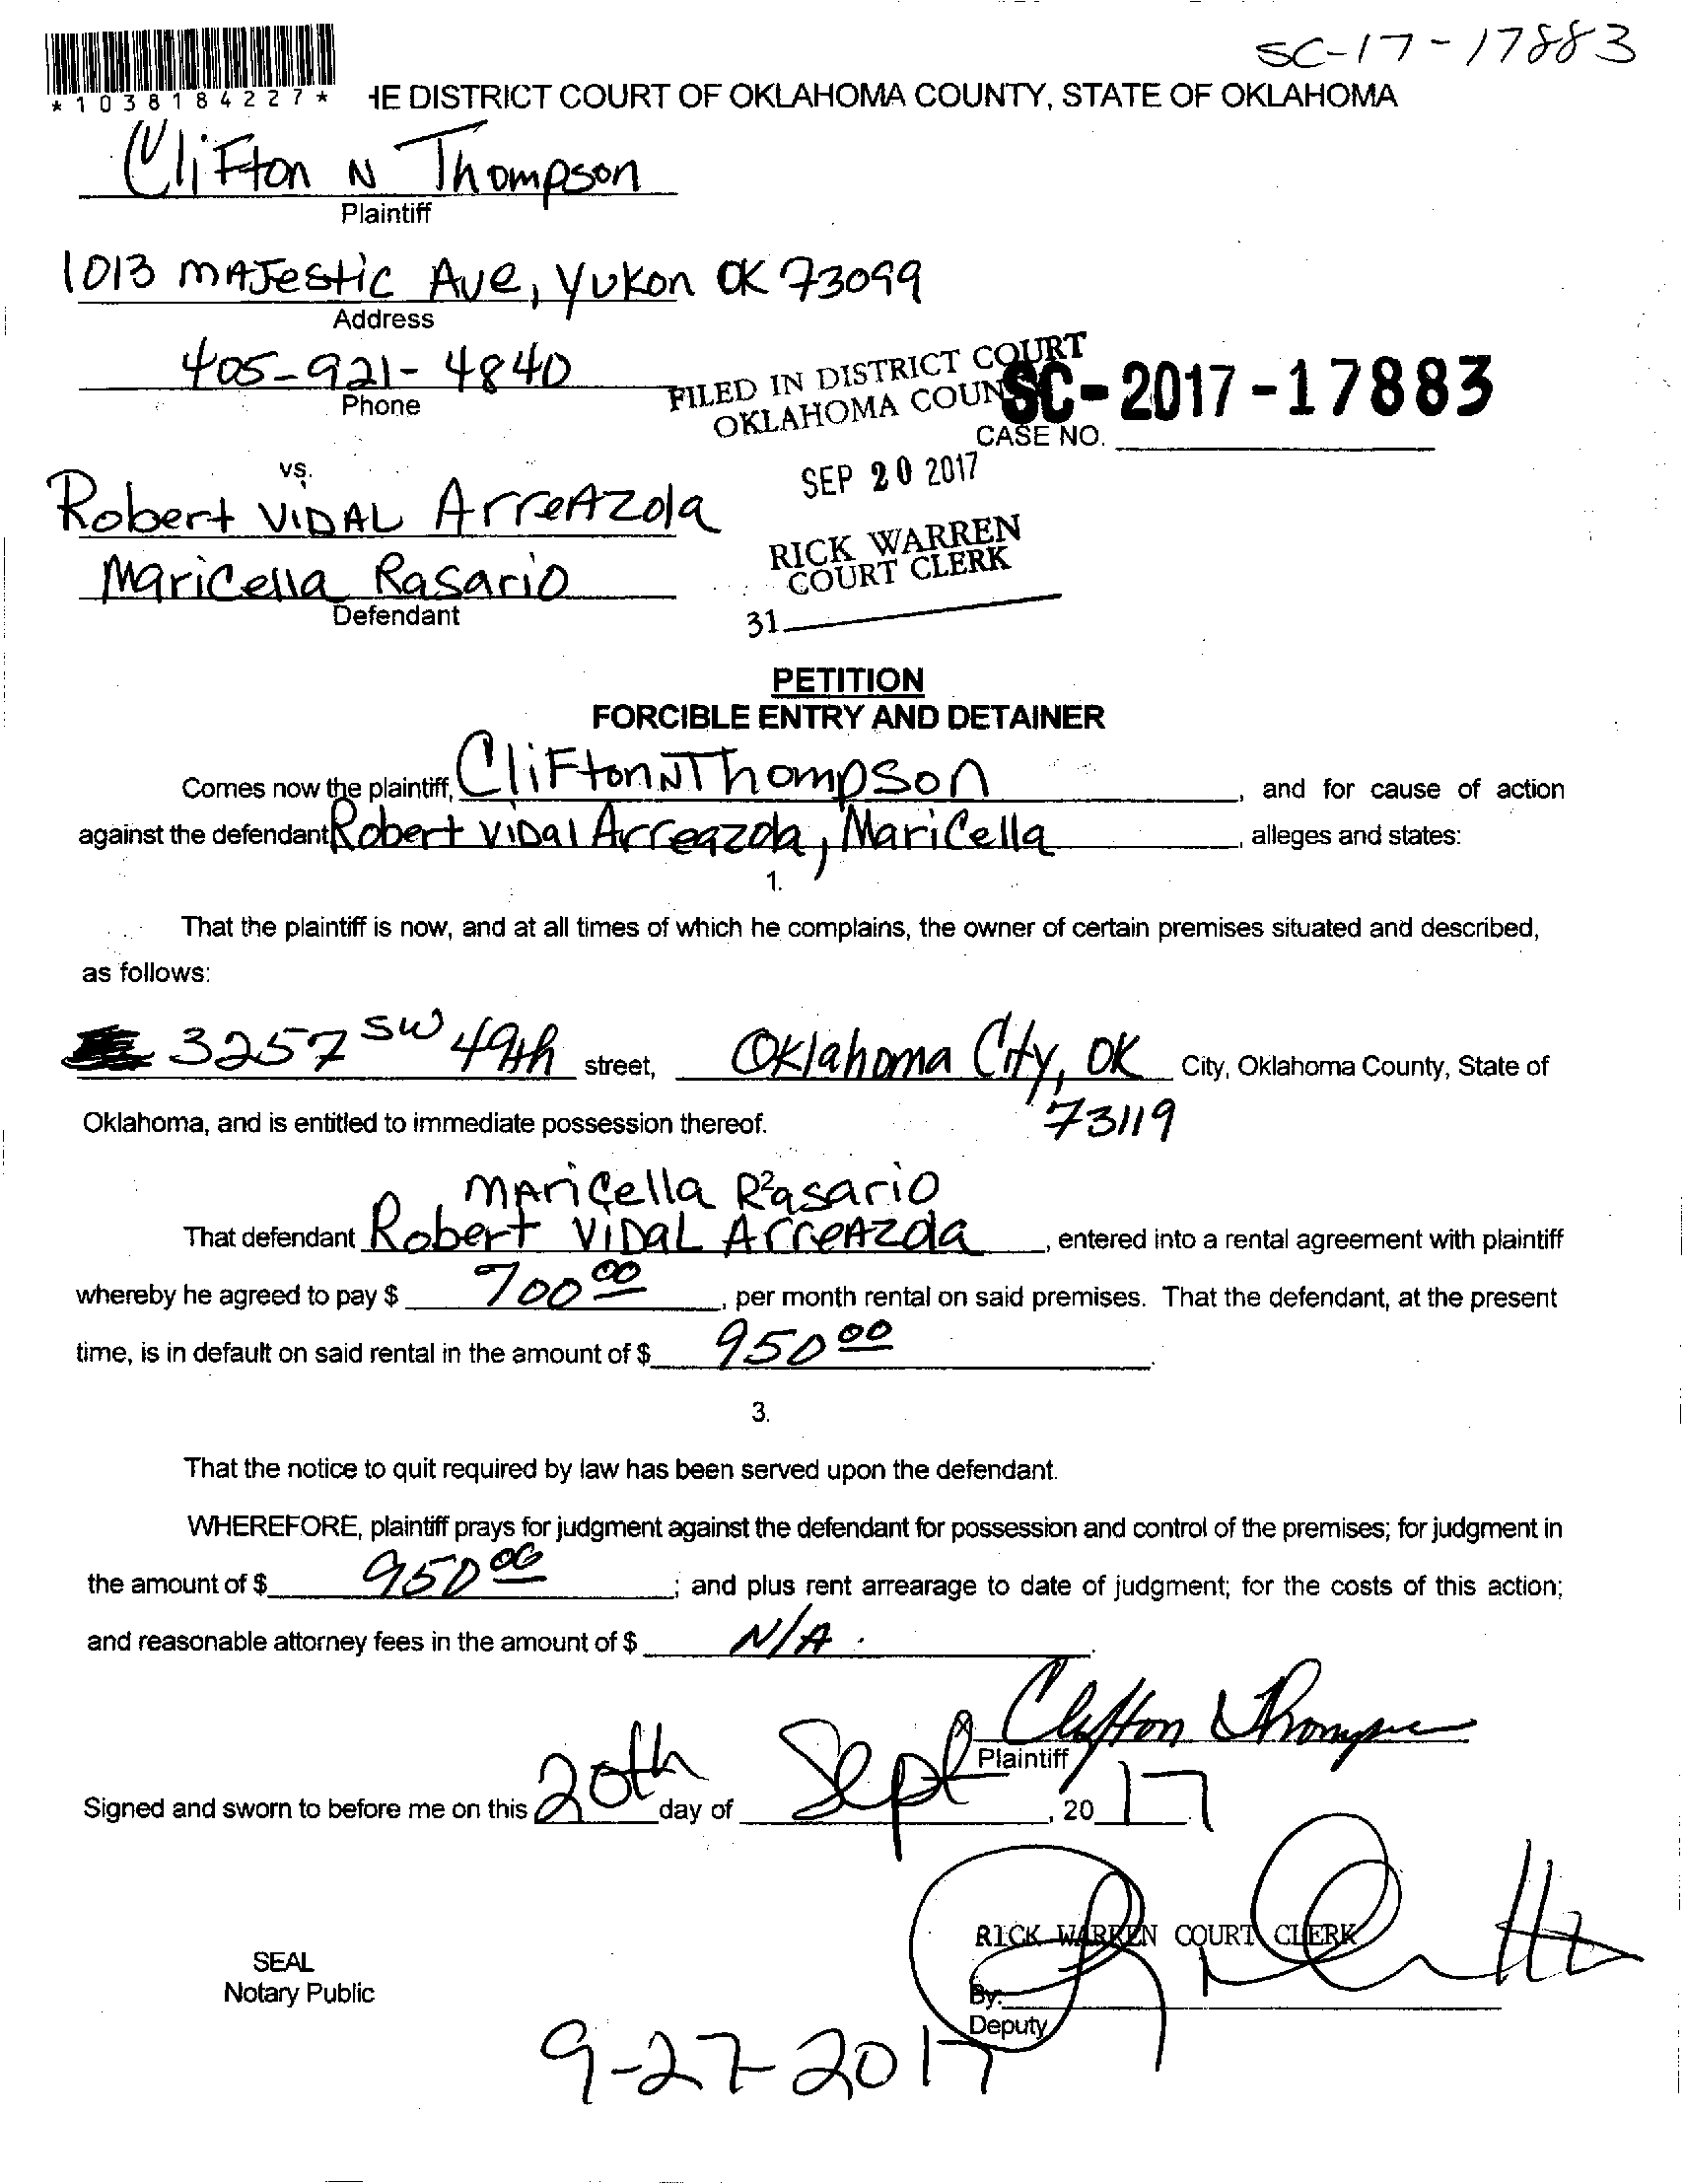 SC-17-17883
*1038184227*
HE DISTRICT COURT OF OKLAHOMA COUNTY, STATE OF OKLAHOMA
Clifton N Thompson
Plaintiff
1013 MAJestic Ave, Yukon OK 73099
Address
405-921-4840
Phone
FILED IN DISTRICT COURT
OKLAHOMA COUN
SC-2017-17883
CASE NO.
SEP 20 2017
RICK WARREN
COURT CLERK
31
vs.
Robert VIDAL ArreAzola
Maricella Rasario
Defendant
PETITION
FORCIBLE ENTRY AND DETAINER
Comes now the plaintiff, CliFton N Thompson, and for cause of action
against the defendant Robert Vidal Arreazola, Maricella, alleges and states:
1.
That the plaintiff is now, and at all times of which he complains, the owner of certain premises situated and described,
as follows:
3257 SW 49th street, Oklahoma City, OK City, Oklahoma County, State of
Oklahoma, and is entitled to immediate possession thereof. 73119
2.
MAricella Rasario
That defendant Robert ViDaL ArreAzola, entered into a rental agreement with plaintiff
whereby he agreed to pay $ 700 00, per month rental on said premises. That the defendant, at the present
time, is in default on said rental in the amount of $ 950 00.
3.
That the notice to quit required by law has been served upon the defendant.
WHEREFORE, plaintiff prays for judgment against the defendant for possession and control of the premises; for judgment in
the amount of $ 950 00; and plus rent arrearage to date of judgment; for the costs of this action;
and reasonable attorney fees in the amount of $ N/A.
x Clifton Thompson
Plaintiff
Signed and sworn to before me on this 20th day of Sept, 20 17
RICK WARREN COURT CLERK
SEAL
Notary Public
By:
Deputy
9-27-2017